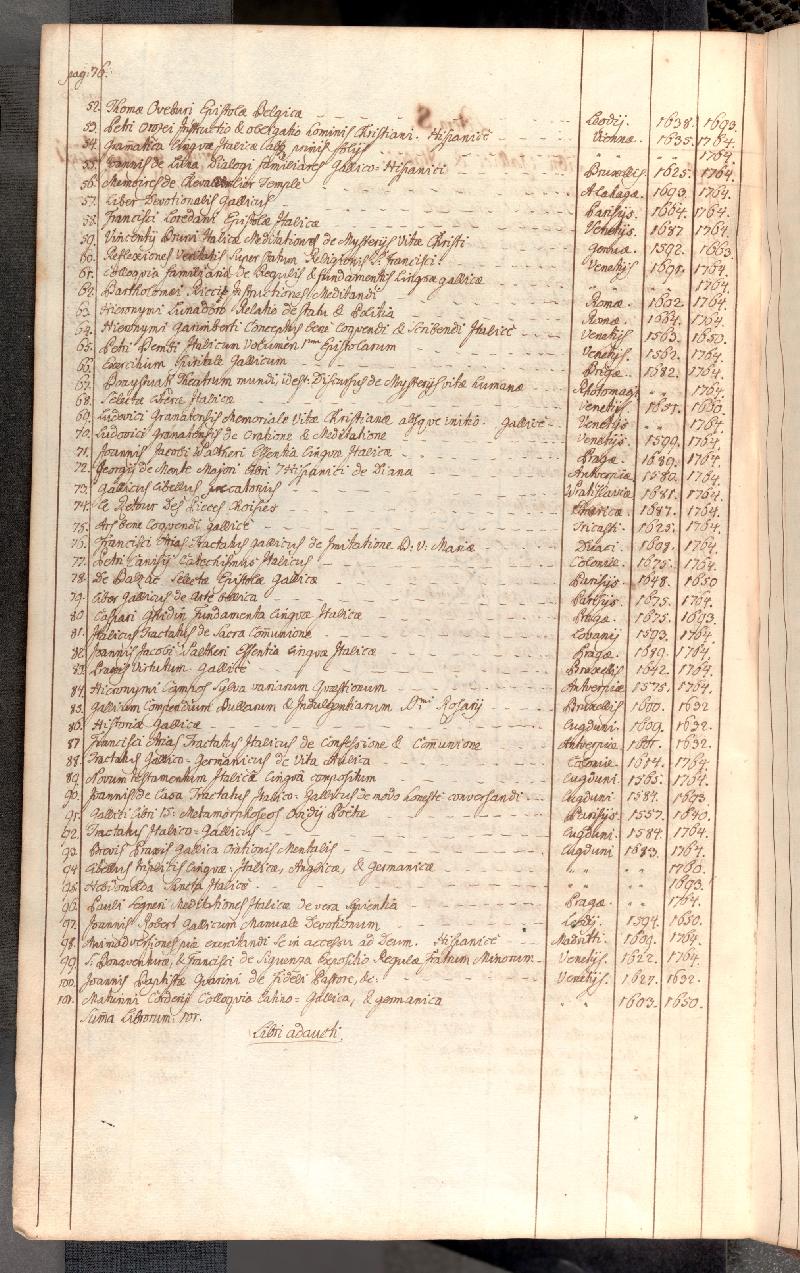 pag: 76.
52. Thomæ Overburi Epistolæ Belgica Leodij. 1638. 1693.
53. Petri Instructio & obligatio hominis Christiani. Hispanicè Viennæ. 1635. 1764.
54. Gramatica Linguæ Italicæ " " 1764.
55. Joannis de Luna, Dialogi familiares Gallico-Hispanici Bruxellis 1625. 1764.
56. Memoires de Temple A la haga. 1693. 1764.
57. Liber Devotionalis Gallicus Parisijs. 1664. 1764.
58. Francisci Loredani Epistolæ Italicæ Venetijs. 1687 1764.
59. Vincentij Bruni Italicæ Meditationes de Mysterijs Vitæ Christi Genuæ. 1592. 1663.
60. Reflexiones Veritatis super statum Religionis S. Francisci Venetijs 1691. 1764.
61. Colloquia familiaria de Regulis & fundamentis Linguæ gallicæ " " 1764.
62. Bartholomæi Riccij Instructiones Meditandi Romæ. 1602. 1764.
63. Hieronymi Lunadoro Relatio de statu & Politia Romæ. 1664. 1764.
64. Hieronymi Garimberti Conceptus bene Loquendi & Scribendi Italicè Venetijs 1563. 1650.
65. Petri Bembi Italicum Volumen 1mum Epistolarum Venetijs. 1562. 1764.
66. Exercitium Gallicum Pragæ. 1682. 1764.
67. Theatrum mundi, idest: Discursus de Mysterijs vitæ humanæ Rhotomagi " " 1764.
68. Selectæ Italicæ Venetijs. 1650.
69. Ludovici Granatensis Memoriale Vitæ Christianæ absque initio. Gallicè Venetijs " " 1764.
70. Ludovici Granatensis de Oratione & Meditatione Venetijs. 1599. 1764.
71. Joannis Jacobi Waltheri Essentia Linguæ Italicæ Pragæ. 1689. 1764.
72. Georgij de Monte Majori libri 7 Hispanici de Diana Antverpiæ 1580. 1764.
73. Gallicus Libellus precatorius Wratislaviæ 1681. 1764.
74. Le Retour Des Pieces choisies 1687. 1764.
75. Ars bene Loquendi gallicè Tricasti. 1625. 1764.
76. Francisci Arias Tractatus gallicus de Imitatione B. V. Mariæ Duaci 1608. 1764.
77. Petri Canisij Catechismus Italicus Coloniæ 1675. 1764.
78. De Balzac Selectæ Epistolæ Gallicæ Parisijs 1648. 1650
79. Liber Gallicus de Arte Parisijs 1675. 1764.
80 Caspari Fundamenta Linguæ Italicæ Pragæ 1675. 1693.
81. Italicus Tractatus de Sacra Comunione Lovanij 1593. 1764.
82. Joannis Jacobi Waltheri Essentia Linguæ Italicæ Pragæ 1689. 1764.
83. Praxis Virtutum Gallicè Bruxellis 1642. 1764.
84. Hieronymi Campos Sylva variarum Quæstionum Antverpiæ 1575. 1764.
85. Gallicum Compendium Bullarum & Indulgentiarum Smi Rosarij Bruxellis 1600. 1632
86. Historiæ Gallicæ Lugduni. 1609. 1632.
87 Francisci Arias Tractatus Italicus de Confessione & Comunione Antverpiæ 1632.
88. Tractatus Gallico-Germanicus de Vita Aulica Coloniæ 1674. 1764.
89. Novum testamentum Italicâ Linguâ compositum Lugduni. 1565. 1764.
90. Joannis de Casa Tractatus Italico-Gallicus de modo honestè conversandi Lugduni 1584. 1693.
91. Gallici Libri 15. Metamorphoseos Ovidij Poëtæ Parisijs. 1557. 1640.
92. Tractatus Italico-Gallicus Lugduni. 1584. 1764.
93. Brevis Praxis Gallica Orationis Mentalis Lugduni 1683. 1764.
94 Libellus triplicis Linguæ: Italicæ, Anglicæ, & germanicæ " " 1760.
95. Hebdomada Sancta Italicè " " 1693.
96. Pauli Segneri Meditationes Italicæ de vera Sapientia Pragæ " " 1764.
97. Joannis Robert Gallicum Manuale Devotionum Leodij. 1594. 1650.
98. Animadversiones piæ exercitandi se in accessu ad Deum. Hispanicè Madritti. 1609. 1764.
99. S. Bonaventuræ, & Francisci de Siguenza Expositio Regulæ Fratrum Minorum Venetijs. 1622. 1764.
100. Joannis Baptistæ Guarini de Fideli Pastore, &c. Venetijs. 1627. 1632.
101. Maturini Corderij Colloquia Latino-Gallica, & germanica " " 1603. 1650.
Suma Librorum: 101.
Libri adaucti.